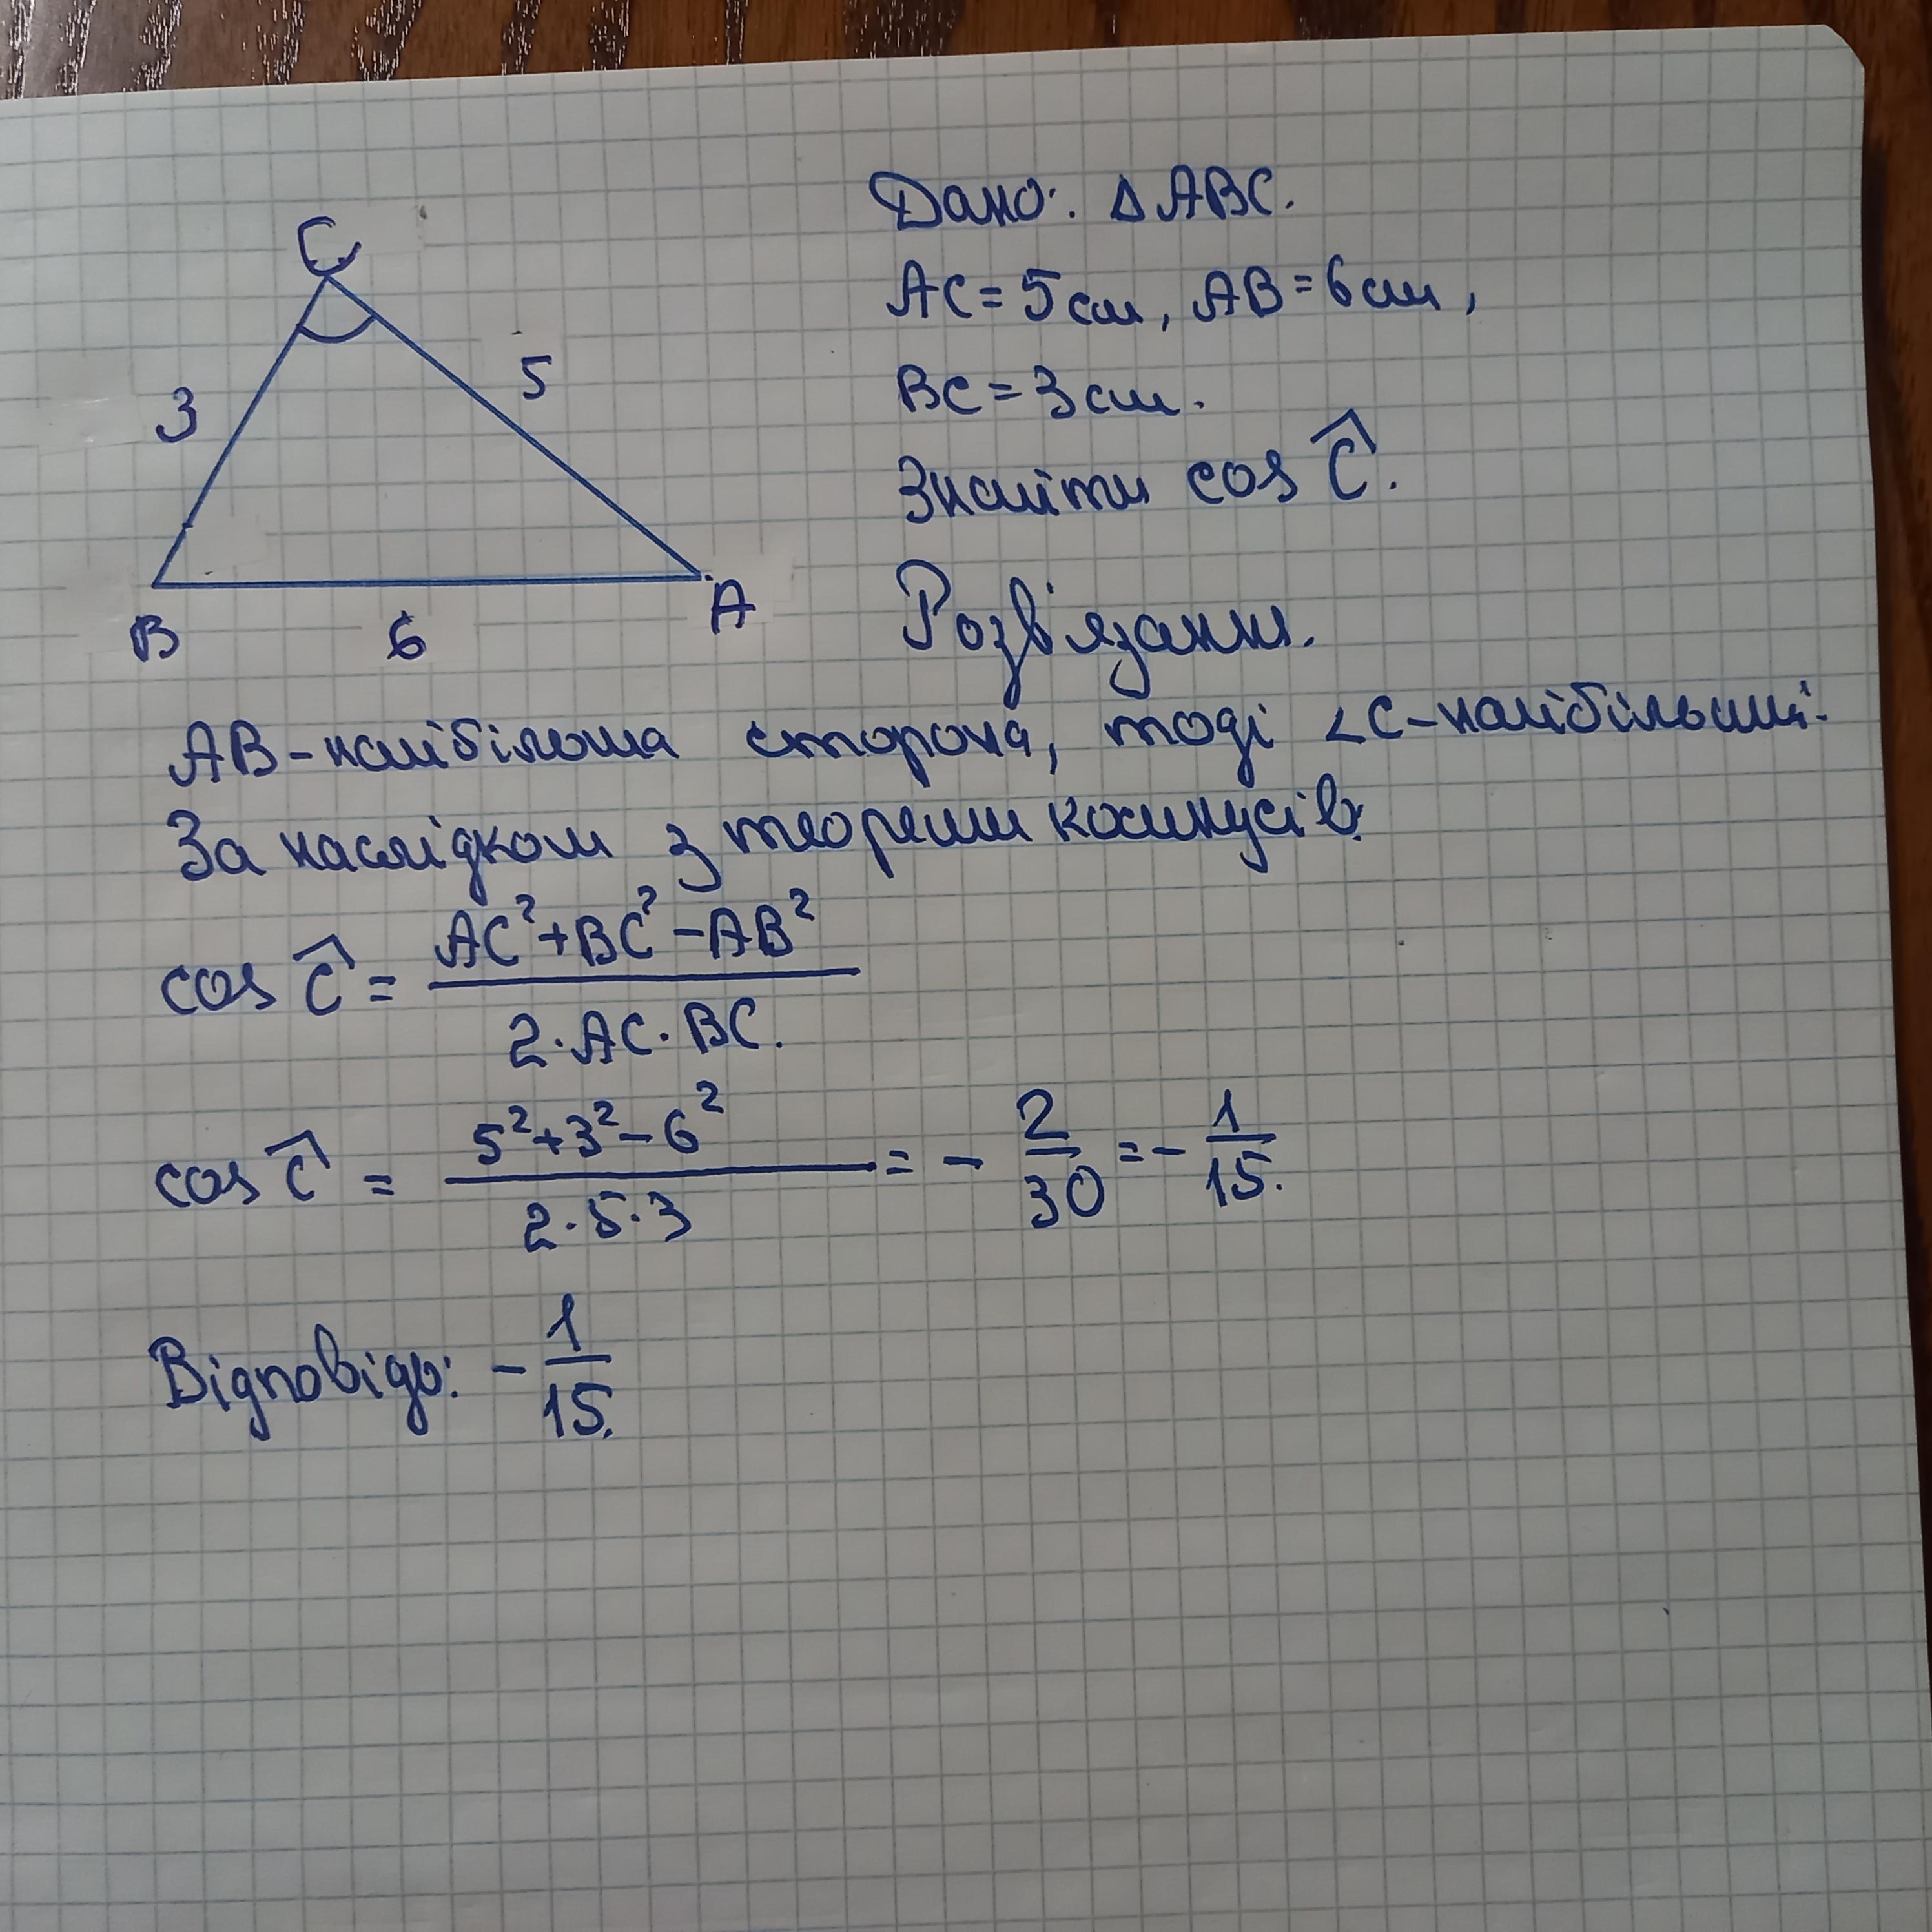 C
3
5
B
6
A
Дано: Δ ABC.
AC = 5 см, AB = 6 см,
BC = 3 см.
Знайти cos Ĉ.
Розв'язання.
AB - найбільша сторона, тоді ∠C - найбільший.
За наслідком з теореми косинусів
cos Ĉ = (AC² + BC² - AB²) / (2 · AC · BC).
cos Ĉ = (5² + 3² - 6²) / (2 · 5 · 3) = - 2/30 = - 1/15.
Відповідь: - 1/15.